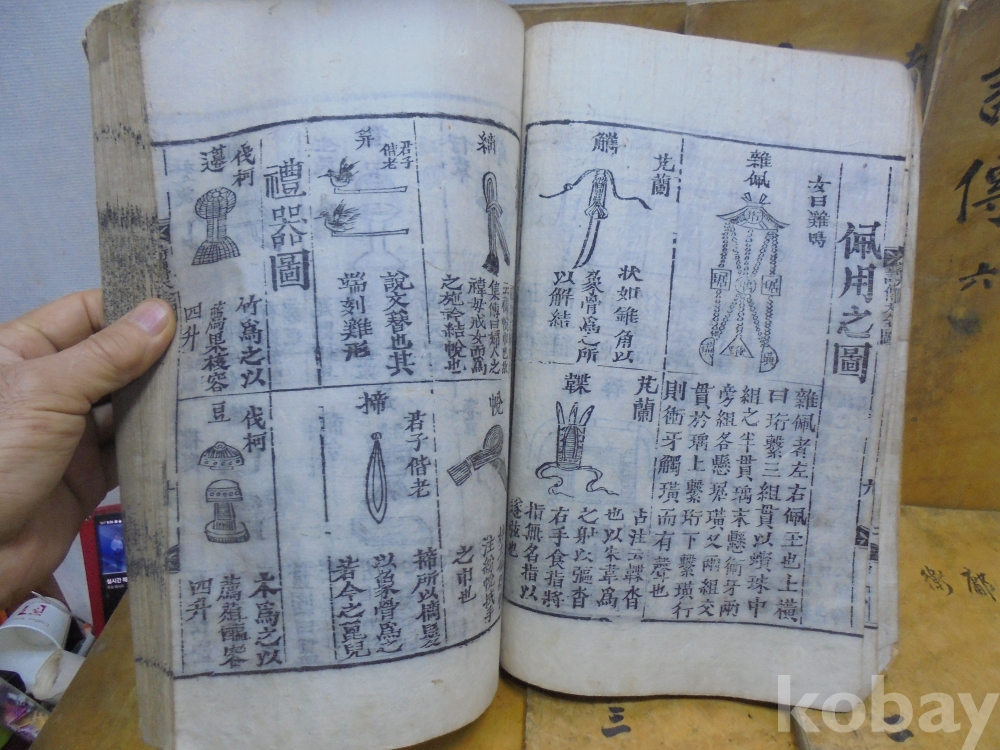 佩用之圖
女曰雞鳴
雜佩
雜佩者左右佩玉也上橫
曰珩繫三組貫以蠙珠中
組之半貫瑀末懸衝牙兩
旁組各懸琚璜又兩組交
貫於瑀上繫珩下繫璜行
則衝牙觸璜而有聲也
芄蘭
觿
狀如錐角以
象骨爲之所
以解結
芄蘭
韘
古注云韘沓
也以朱韋爲
之射以彄沓
右手食指將
指無名指以
遂弦也
縭
集傳曰婦人之
褘母戒女而爲
之施衿結帨也
帨
之巾也
君子
偕老
笄
說文簪也其
端刻雞形
君子偕老
揥
揥所以摘髮
以象骨爲之
若今之篦兒
禮器圖
伐柯
籩
竹爲之以
薦果核容
四升
伐柯
豆
木爲之以
薦菹醢容
四升
傳
六
三
二
鄘
衛
kobay